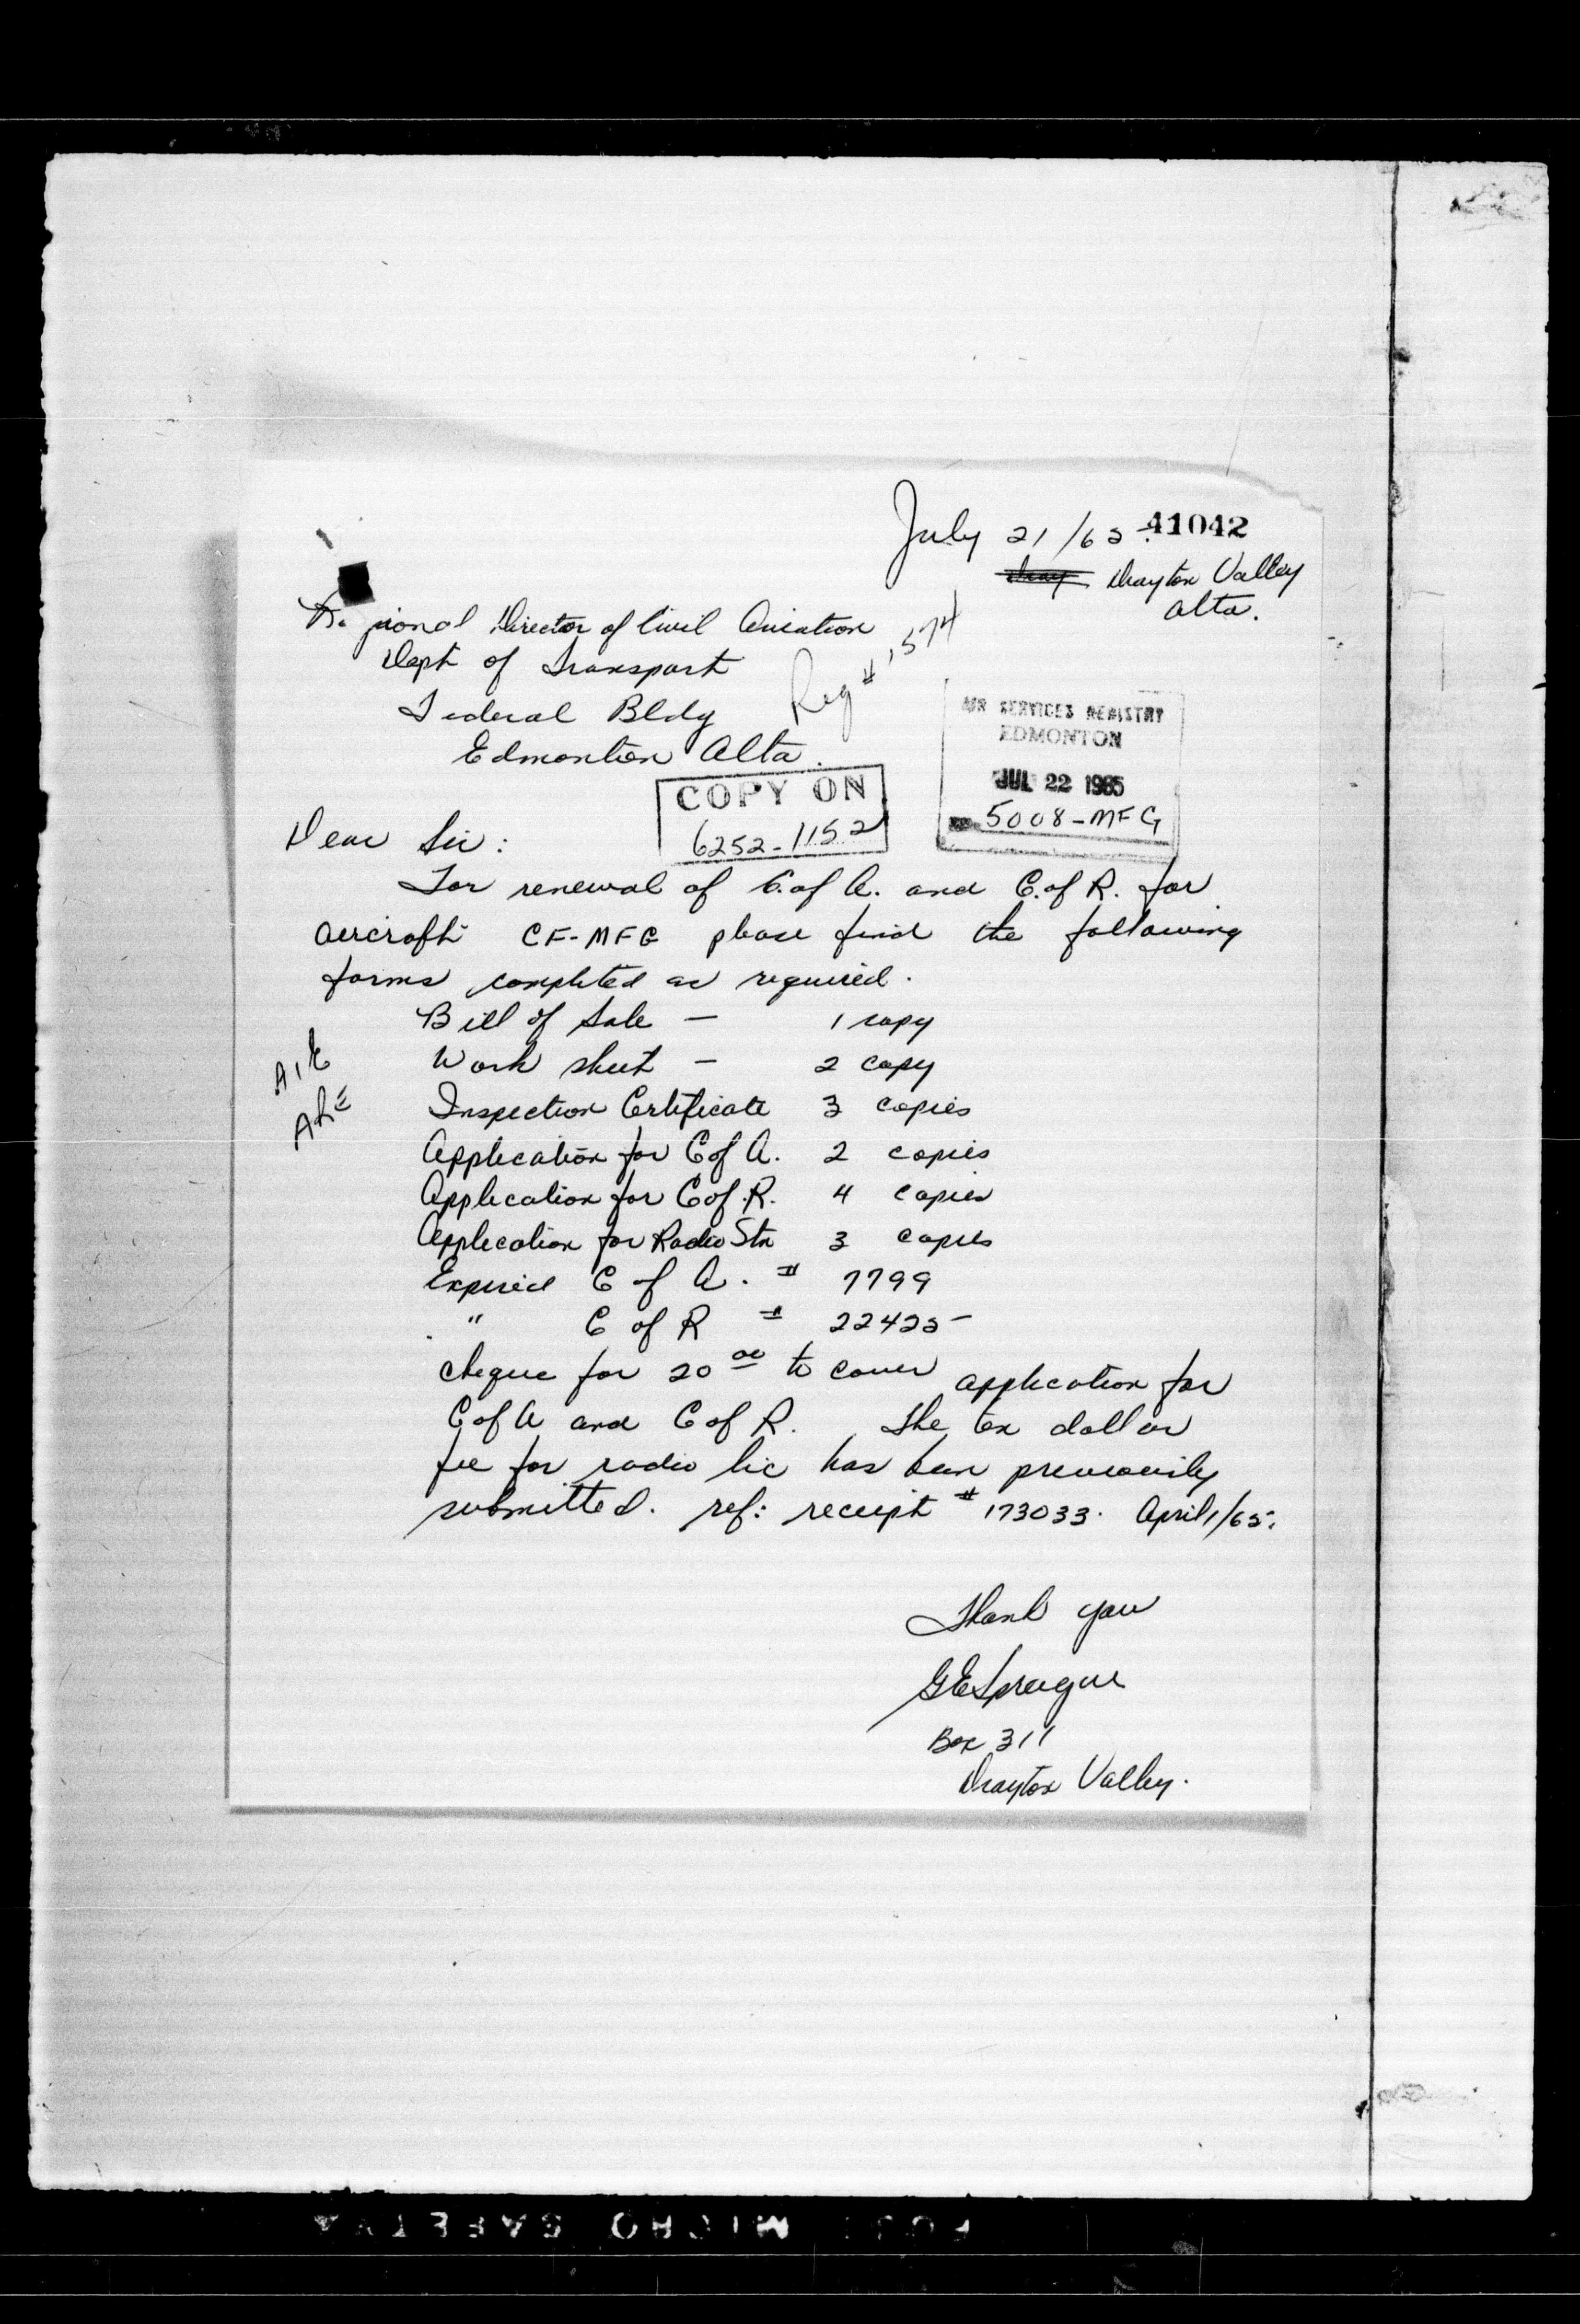 July 21/65 41042
Drayton Valley
Alta.
Regional Director of Civil Aviation
Dept of Transport
Federal Bldg
Edmonton Alta.
Reg # 1574
AIR SERVICES REGISTRY
EDMONTON
JUL 22 1965
5008-MFG
COPY ON
6252-1152
Dear Sir:
For renewal of C. of A. and C. of R. for
aircraft CF-MFG please find the following
forms completed as required.
Bill of Sale - 1 copy
Work sheet - 2 copy
AIE
Inspection Certificate 3 copies
Application for C of A. 2 copies
Application for C of R. 4 copies
Application for Radio Stn 3 copies
Expired C of A. # 7799
" C of R # 22425
cheque for 20 00 to cover application for
C of A and C of R. The ten dollar
fee for radio lic has been previously
submitted. ref: receipt # 173033. April 1/65.
Thank you
GE Sprague
Box 311
Drayton Valley.